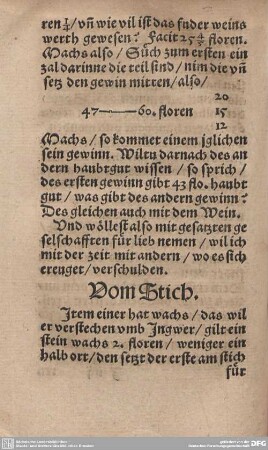 ren 1/4/ vñ wie vil ist das fuder weins
werth gewesen? Facit 25 4/5 floren.
Machs also/ Such zum ersten ein
zal darinne die teil sind/ nim die vñ
setz den gewin mitten/ also/
20
47 —— 60. floren 15
12
Machs/ so kommet einem jglichen
sein gewinn. Wiltu darnach des an
dern haubtgut wissen/ so sprich/
des ersten gewinn gibt 43 flo. haubt
gut/ was gibt des andern gewinn?
Des gleichen auch mit dem Wein.
Vnd wöllest also mit gesatzten ge
selschafften für lieb nemen/ wil ich
mit der zeit mit andern/ wo es sich
ereuget/ verschulden.
Vom Stich.
Item einer hat wachs/ das wil
er verstechen vmb Ingwer/ gilt ein
stein wachs 2. floren/ weniger ein
halb ort/ den setzt der erste am stich
für